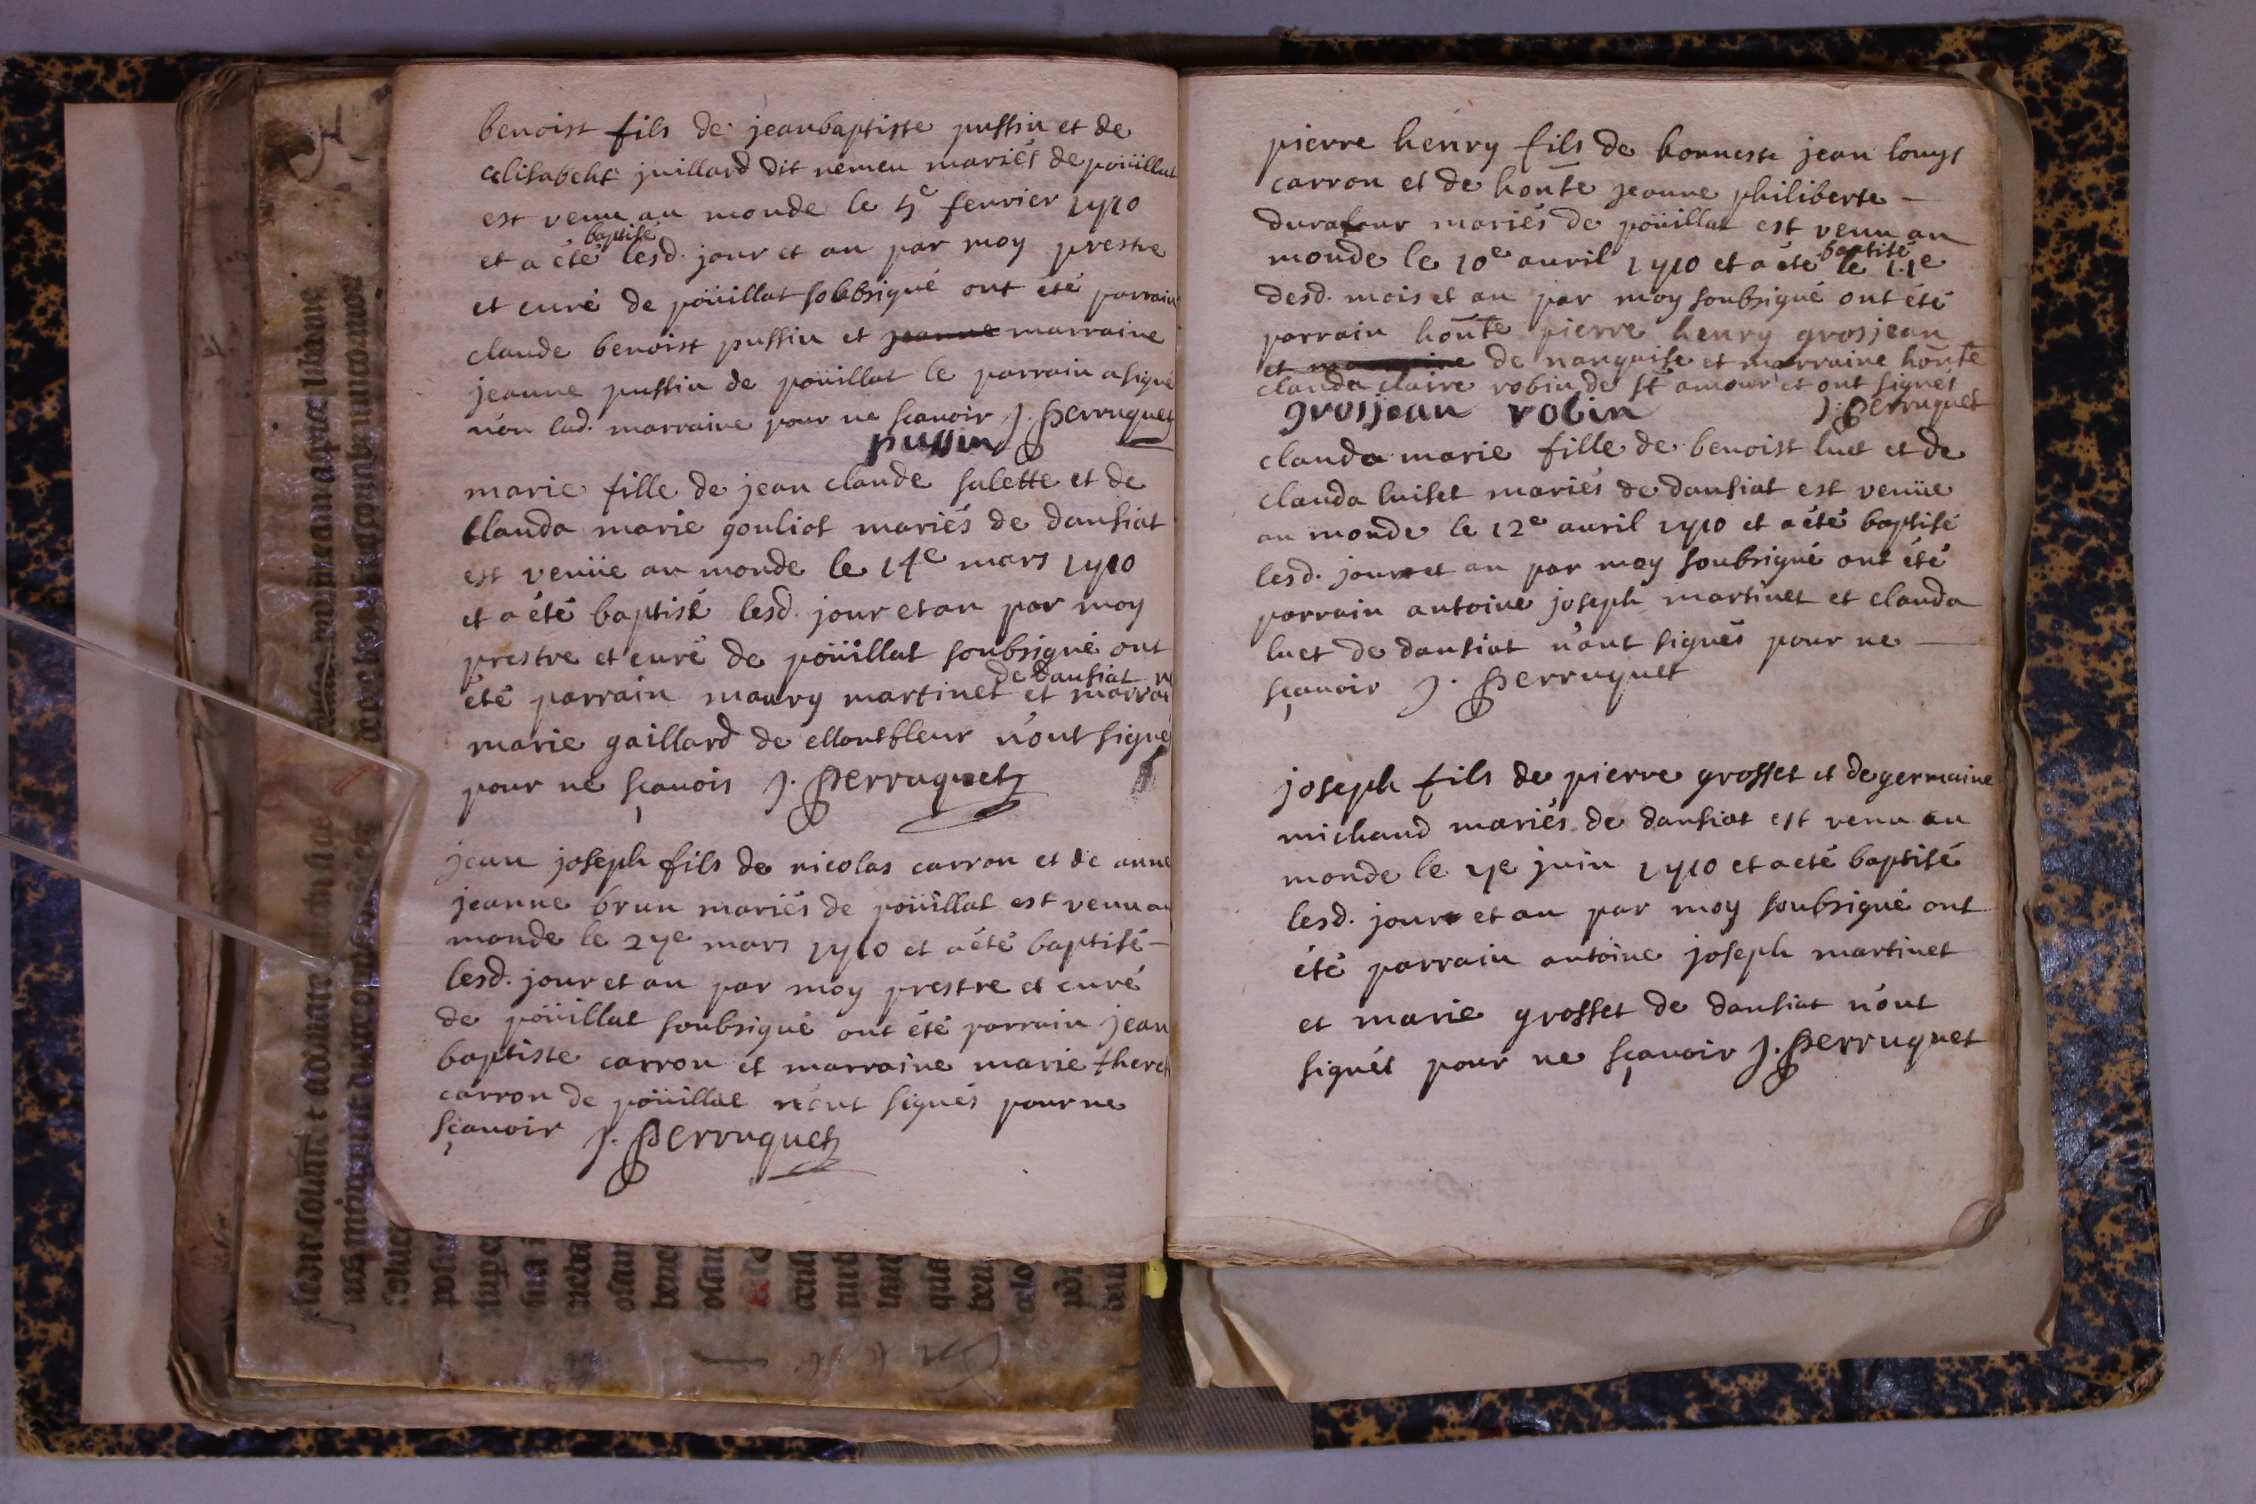 benoist fils de jeanbaptiste pussin et de
elisabeht juillard dit nemeu mariés de poüillat
est venu au monde le 5e feurier 1710
et a été baptisé lesd. jour et an par moy prestre
et curé de poüillat soubsigné ont été parrain
claude benoist pussin et jeanne marraine
jeanne pussin de poüillat le parrain a signé
non lad. marraine pour ne scauoir J. Perruquet
pussin
marie fille de jean claude salette et de
clauda marie gouliot mariés de dansiat
est venüe au monde le 14e mars 1710
et a été baptisé lesd. jour et an par moy
prestre et curé de poüillat soubsigné ont
de dansiat
été parrain maury martinet et marrai
marie gaillard de Montfleur n'ont signé
pour ne sçauois J. Perruquet
jean joseph fils de nicolas carron et de anne
jeanne brun mariés de poüillat est venu au
monde le 27e mars 1710 et a été baptisé
lesd. jour et an par moy prestre et curé
de poüillat soubsigné ont été parrain jean
baptiste carron et marraine marie there
carron de poüillat n'ont signés pour ne
sçauoir J. Perruquet
pierre henry fils de honneste jean louys
carron et de honte jeanne philiberte
durafour mariés de poüillat est venu au
monde le 10e auril 1710 et a été baptisé le 11e
desd. mois et an par moy soubsigné ont été
parrain honte pierre henry grosjean
et marraine de nanquise et marraine honte
clauda claire robin de st amour et ont signés
grosjean robin J. Perruquet
clauda marie fille de benoist luet et de
clauda luiset mariés de dansiat est venüe
au monde le 12e auril 1710 et a été baptisé
lesd. jour et an par moy soubsigné ont été
parrain antoine joseph martinet et clauda
luet de dansiat n'ont signés pour ne
sçauoir J. Perruquet
joseph fils de pierre grosset et de germaine
michaud mariés de dansiat est venu au
monde le 17e juin 1710 et a eté baptisé
lesd. jour et an par moy soubsigné ont
été parrain antoine joseph martinet
et marie grosset de dansiat n'ont
signés pour ne sçauoir J. Perruquet